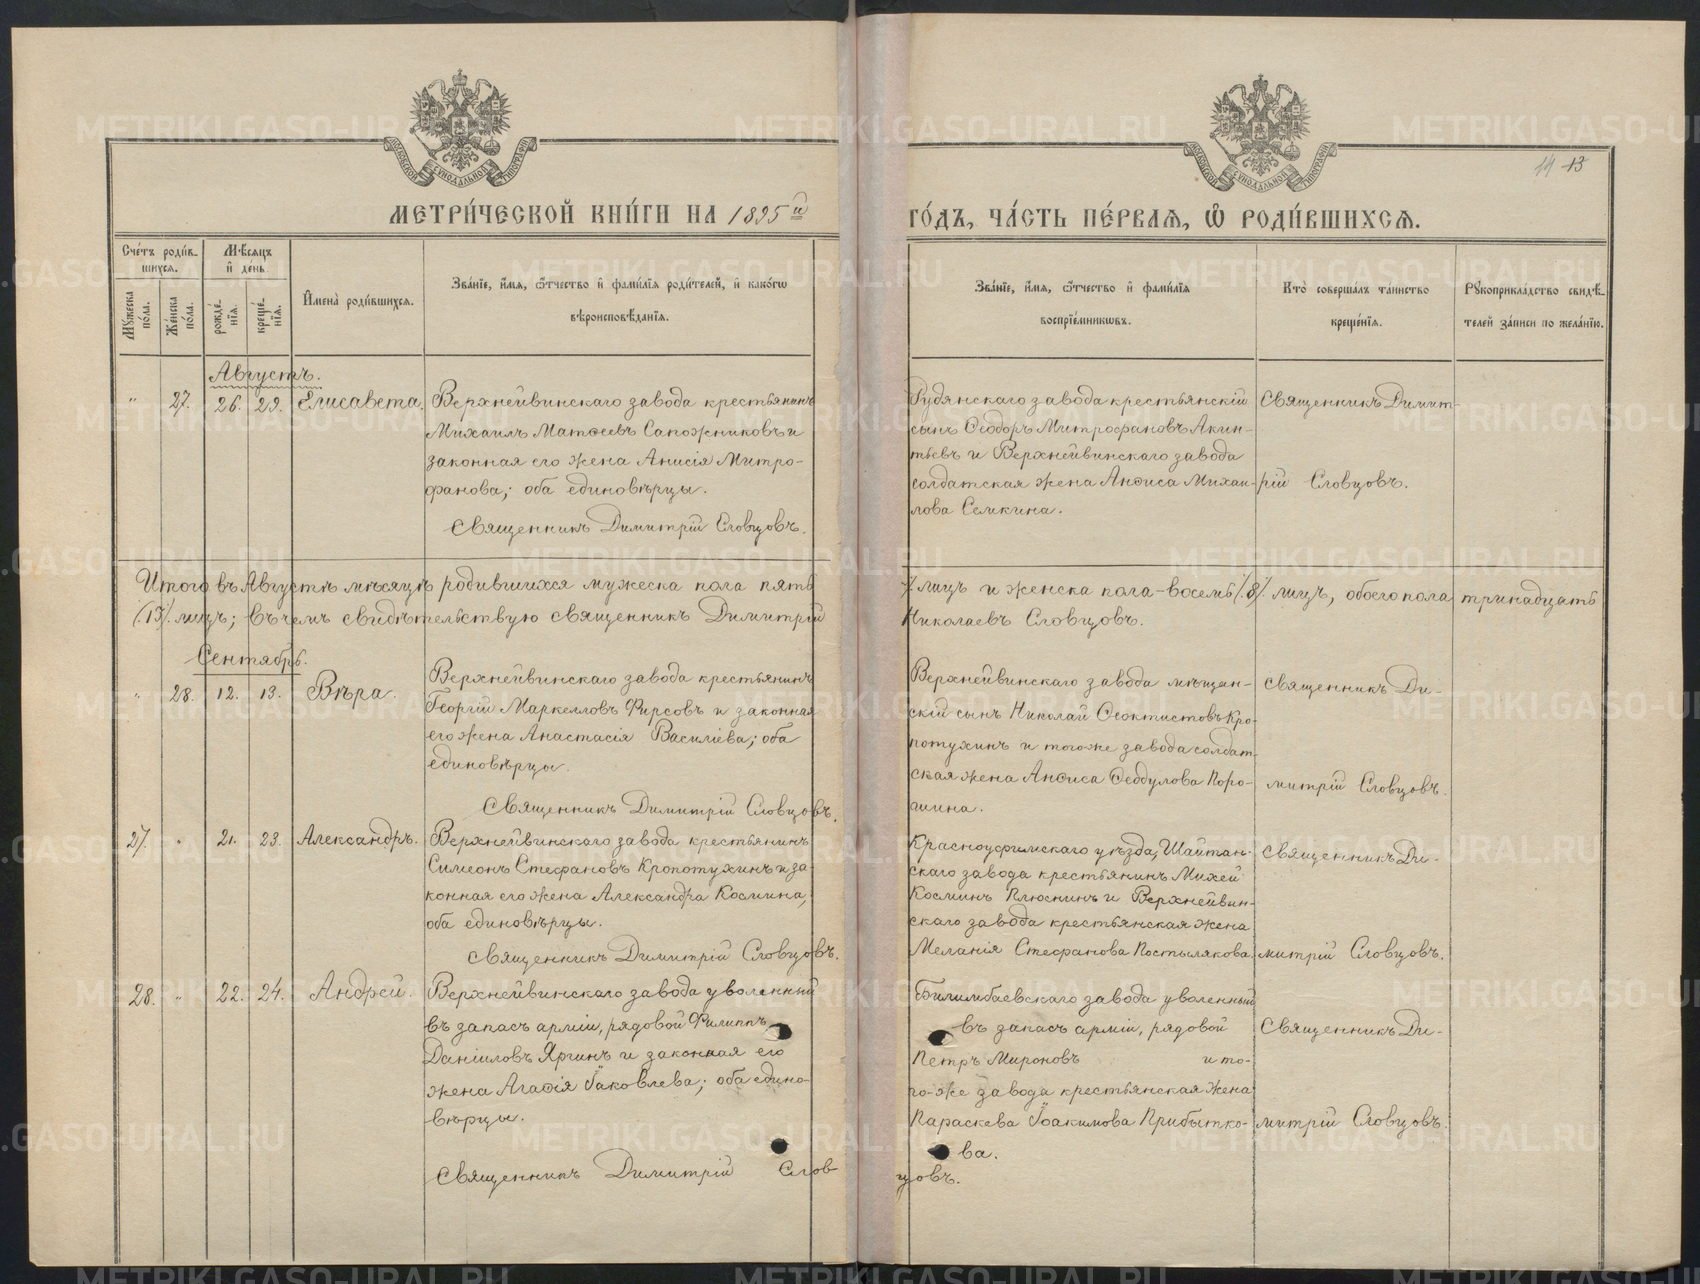 МОСКОВСКОЙ СѴНОДАЛЬНОЙ ТИПОГРАФІИ
МОСКОВСКОЙ СѴНОДАЛЬНОЙ ТИПОГРАФІИ
14 13
МЕТРИ́ЧЕСКОЙ КНИ́ГИ НА 1895й ГО́ДЪ, ЧА́СТЬ ПЕ́РВАѦ, Ѡ҆ РОДИ́ВШИХСѦ.
Сче́тъ роди́в-
шихсѧ.
Мꙋ́жеска по́ла.
Же́нска по́ла.
Мѣ́сѧцъ
и҆ де́нь.
рожде́-
нїѧ.
креще́-
нїѧ.
И҆мена̀ роди́вшихсѧ.
Зва́нїе, и҆́мѧ, ѻ҆́тчество и҆ фами́лїѧ роди́телей, и҆ како́гѡ
вѣроисповѣ́данїѧ.
Зва́нїе, и҆́мѧ, ѻ҆́тчество и҆ фами́лїѧ
воспрїе́мникѡвъ.
Кто̀ соверша́лъ та́инство
креще́нїѧ.
Рꙋкоприкла́дство свидѣ́-
телей за́писи по жела́нїю.
Августъ.
" 27. 26. 29. Елисавета.
Верхнейвинскаго завода крестьянинъ
Михаилъ Матѳеевъ Сапожниковъ и
законная его жена Анисія Митро-
фанова; оба единовѣрцы.
Священникъ Димитрій Словцовъ.
Рудянскаго завода крестьянскій
сынъ Ѳеодоръ Митрофановъ Акин-
тьевъ и Верхнейвинскаго завода
солдатская жена Анѳиса Михаи-
лова Семкина.
Священникъ Димит-
рій Словцовъ.
Итого въ Августѣ мѣсяцѣ родившихся мужеска пола пять
/5/. лицъ и женска пола - восемь /8/. лицъ, обоего пола тринадцать
/.13/. лицъ; въ чемъ свидѣтельствую священникъ Димитрій
Николаевъ Словцовъ.
Сентябрь.
" 28. 12. 13. Вѣра.
Верхнейвинскаго завода крестьянинъ
Георгій Маркелловъ Фирсовъ и законная
его жена Анастасія Василіева; оба
единовѣрцы.
Священникъ Димитрій Словцовъ.
Верхнейвинскаго завода мѣщан-
скій сынъ Николай Ѳеоктистовъ Кро-
потухинъ и того же завода солдат-
ская жена Анѳиса Ѳеддулова Поро-
шина.
Священникъ Ди-
митрій Словцовъ.
27. " 21. 23. Александръ.
Верхнейвинскаго завода крестьянинъ
Симеонъ Стефановъ Кропотухинъ и за-
конная его жена Александра Космина;
оба единовѣрцы.
Священникъ Димитрій Словцовъ.
Красноуфимскаго уѣзда, Шайтан-
скаго завода крестьянинъ Михей
Косминъ Плюснинъ и Верхнейвин-
скаго завода крестьянская жена
Меланія Стефанова Постылякова.
Священникъ Ди-
митрій Словцовъ.
28. " 22. 24. Андрей.
Верхнейвинскаго завода уволенный
въ запасъ арміи, рядовой Филиппъ
Даніиловъ Яргинъ и законная его
жена Агафія Іаковлева; оба едино-
вѣрцы.
Священникъ Димитрій Слов-
цовъ.
Билимбаевскаго завода уволенный
въ запасъ арміи, рядовой
Петръ Мироновъ и то-
го-же завода крестьянская жена
Параскева Іоакимова Прибытко-
ва.
Священникъ Ди-
митрій Словцовъ.
METRIKI.GASO-URAL.RU